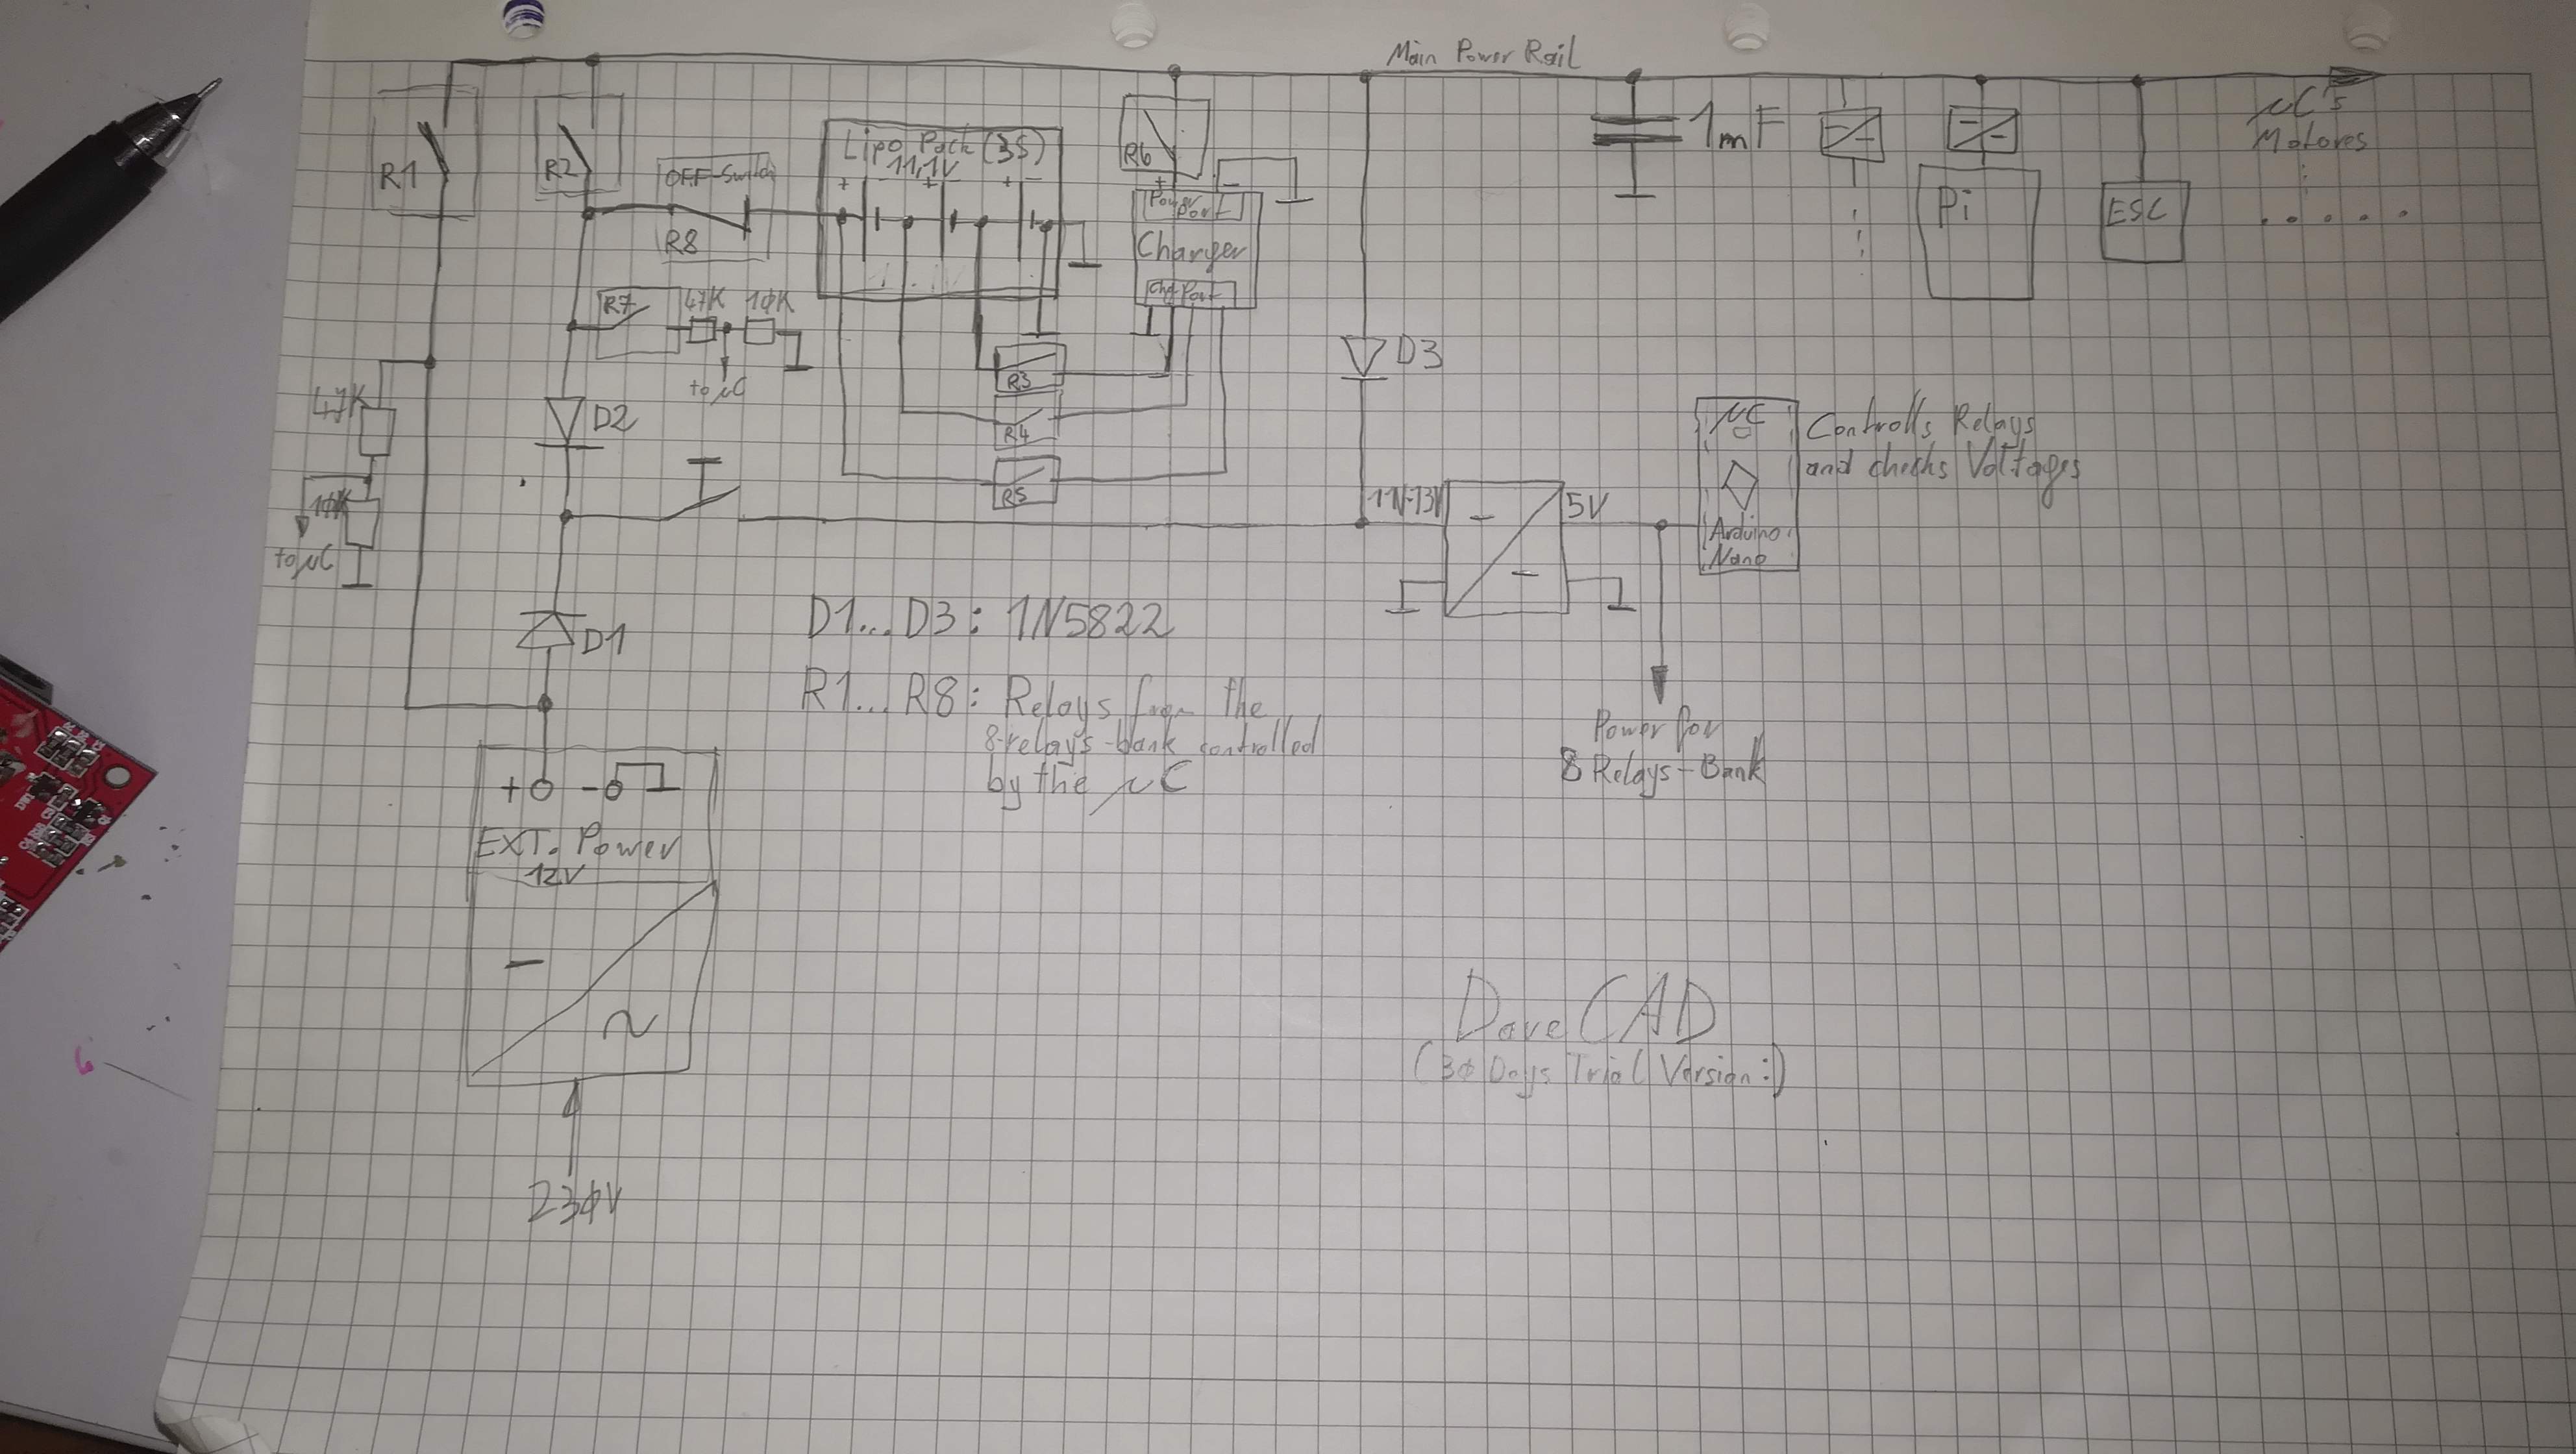 Main Power Rail
R1
R2
OFF-Switch
R8
Lipo Pack (3S)
11,1V
+ - + - + -
R6
+ -
Power
Port
Charger
Chg Port
1mF
Pi
ESC
µC's
Motores
R7
47K
10K
to µC
R3
R4
R5
D3
47K
10K
to µC
D2
11V-13V
5V
µC
Arduino
Nano
Controlls Relays
and checks Voltages
D1
D1...D3: 1N5822
R1...R8: Relays from the
8-relays-bank controlled
by the µC
Power for
8 Relays-Bank
+ -
EXT. Power
12V
230V
DaveCAD
(30 Days Trial Version:)